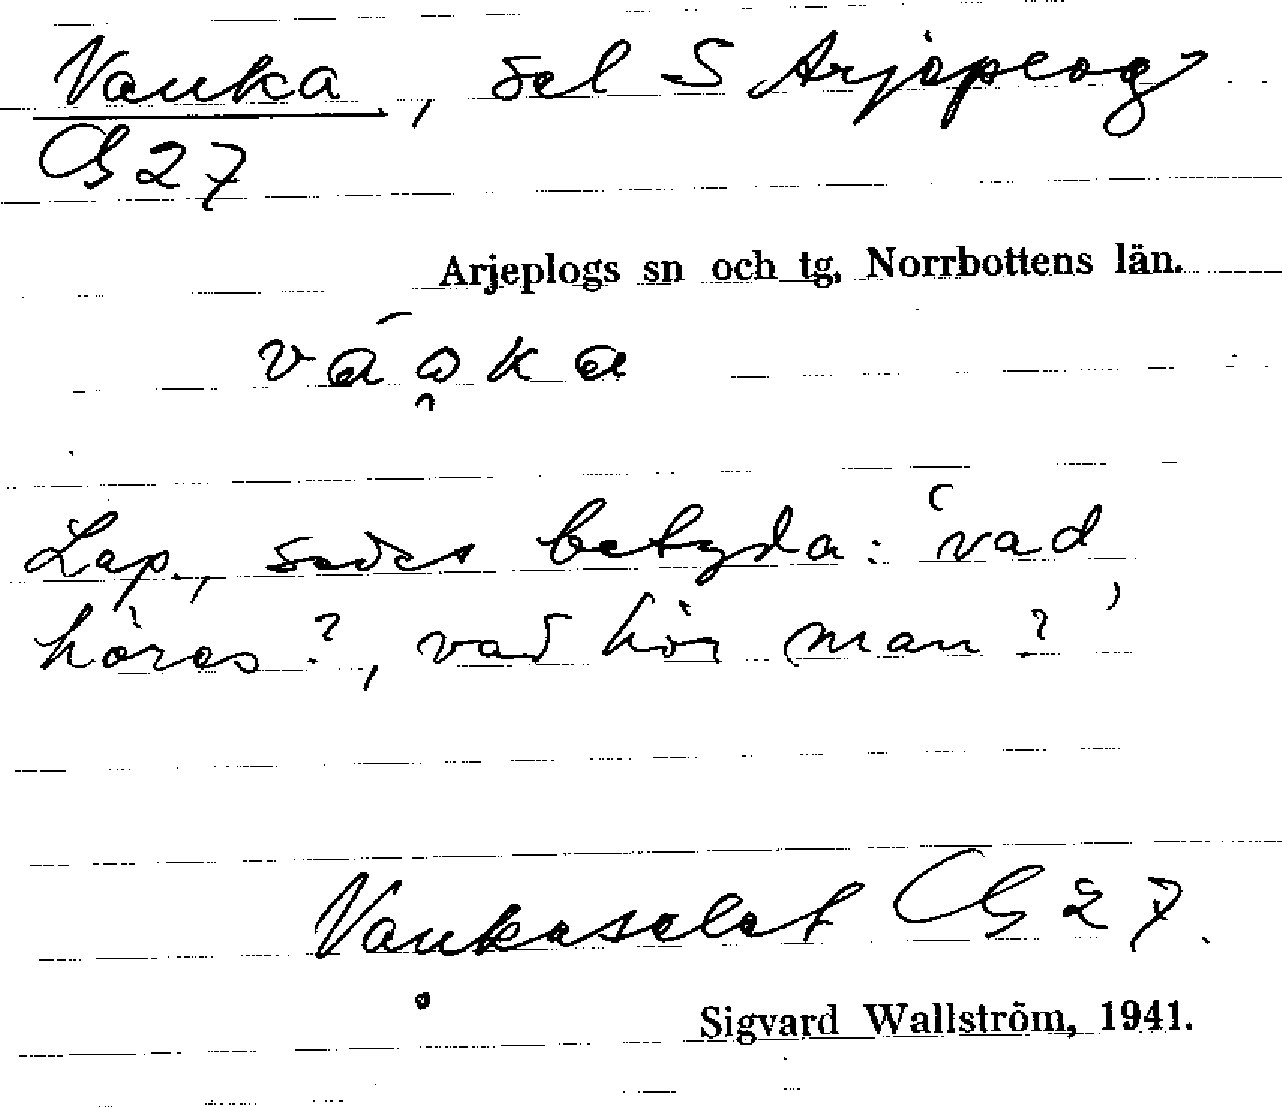 Vauka, sel S Arjeplog
GS 27
Arjeplogs sn och tg, Norrbottens län.
váo̭ka
Lap., sades betyda: ‘vad
höres?, vad hör man?’
Vaukaselet GS 27.
Sigvard Wallström, 1941.